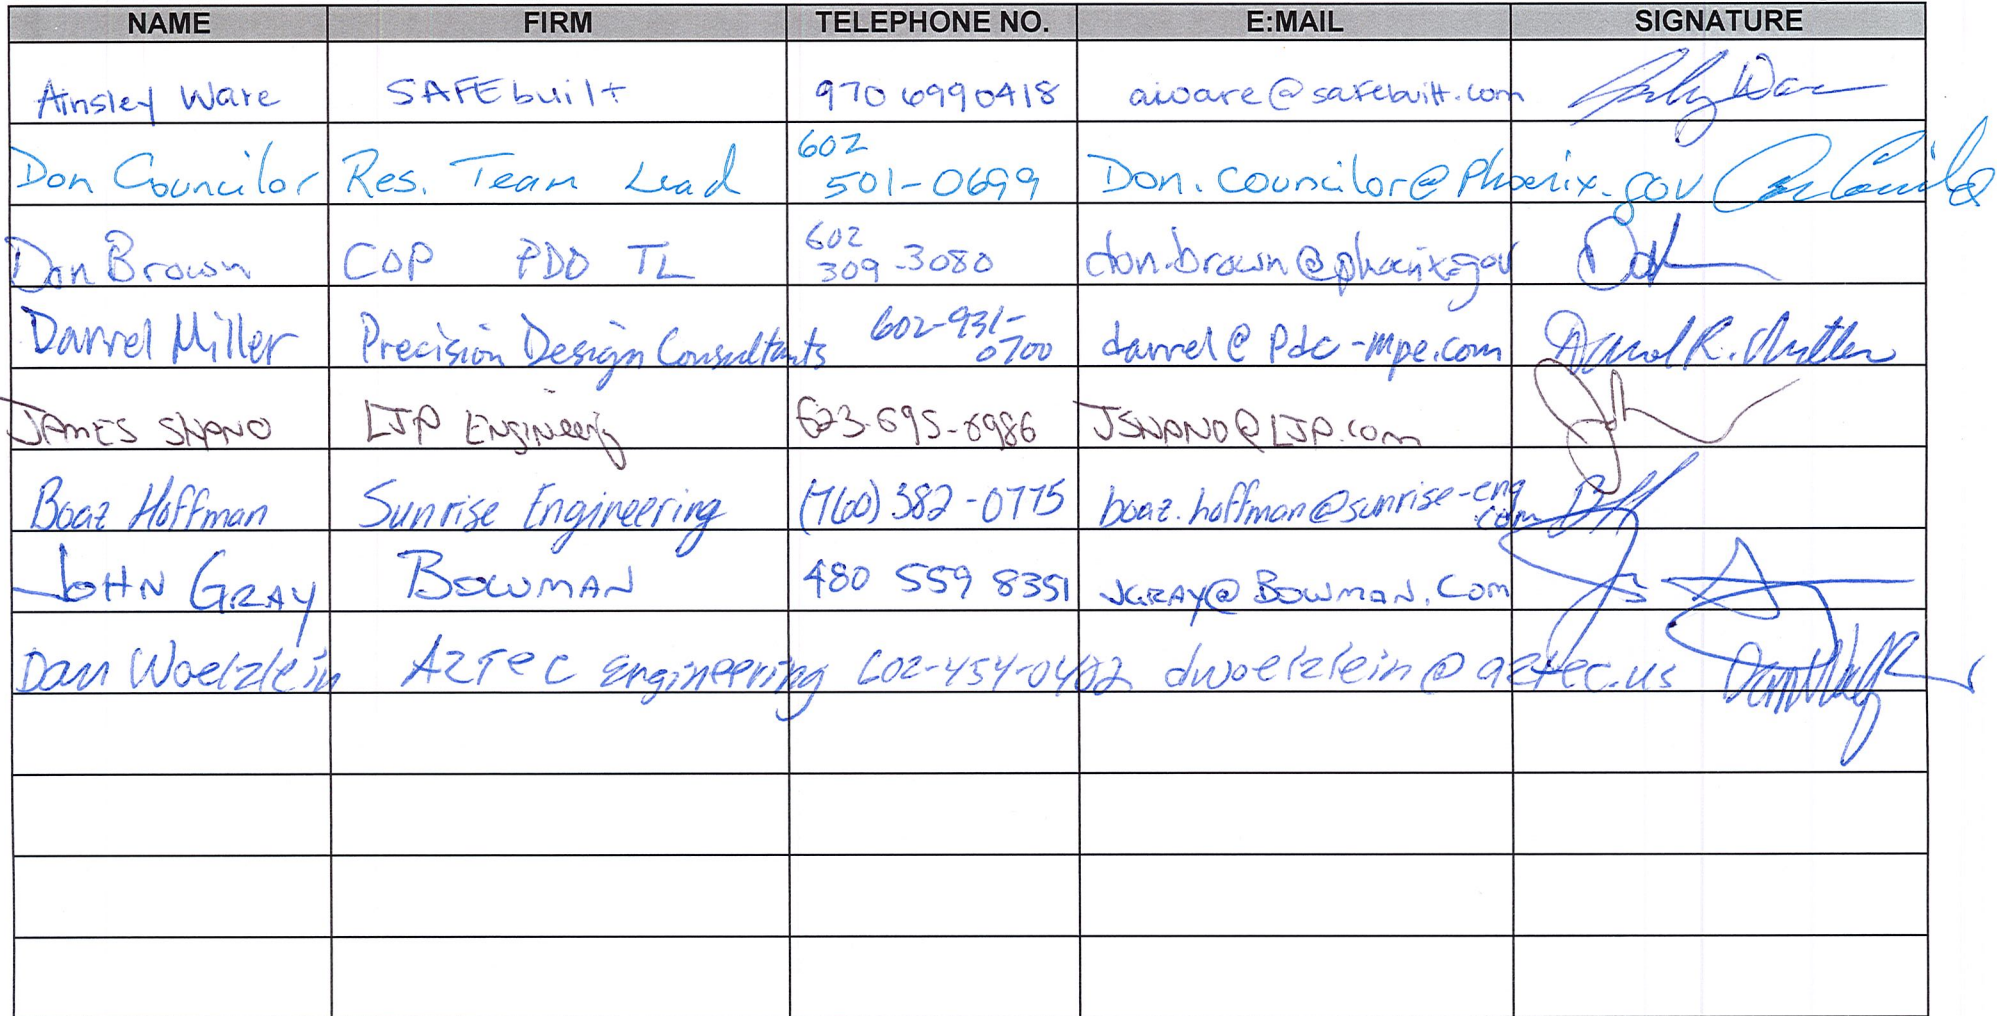 NAME FIRM TELEPHONE NO. E:MAIL SIGNATURE
Ainsley Ware SAFEbuilt 970 6990418 aware@safebuilt.com
Don Councilor Res. Team Lead 602 501-0699 Don.councilor@Phoenix.gov
Don Brown COP PDD TL 602 309-3080 don.brown@phoenix.gov
Darrel Miller Precision Design Consultants 602-931-0700 darrel@pdc-mpe.com
JAMES LJP Engineering
Boaz Hoffman Sunrise Engineering (760) 382-0775 boaz.hoffman@sunrise-eng.com
JOHN GRAY BOWMAN 480 559 8351 JGRAY@BOWMAN.COM
Dan Woelzlein AZTEC Engineering 602-454-0402 dwoelzlein@aztec.us